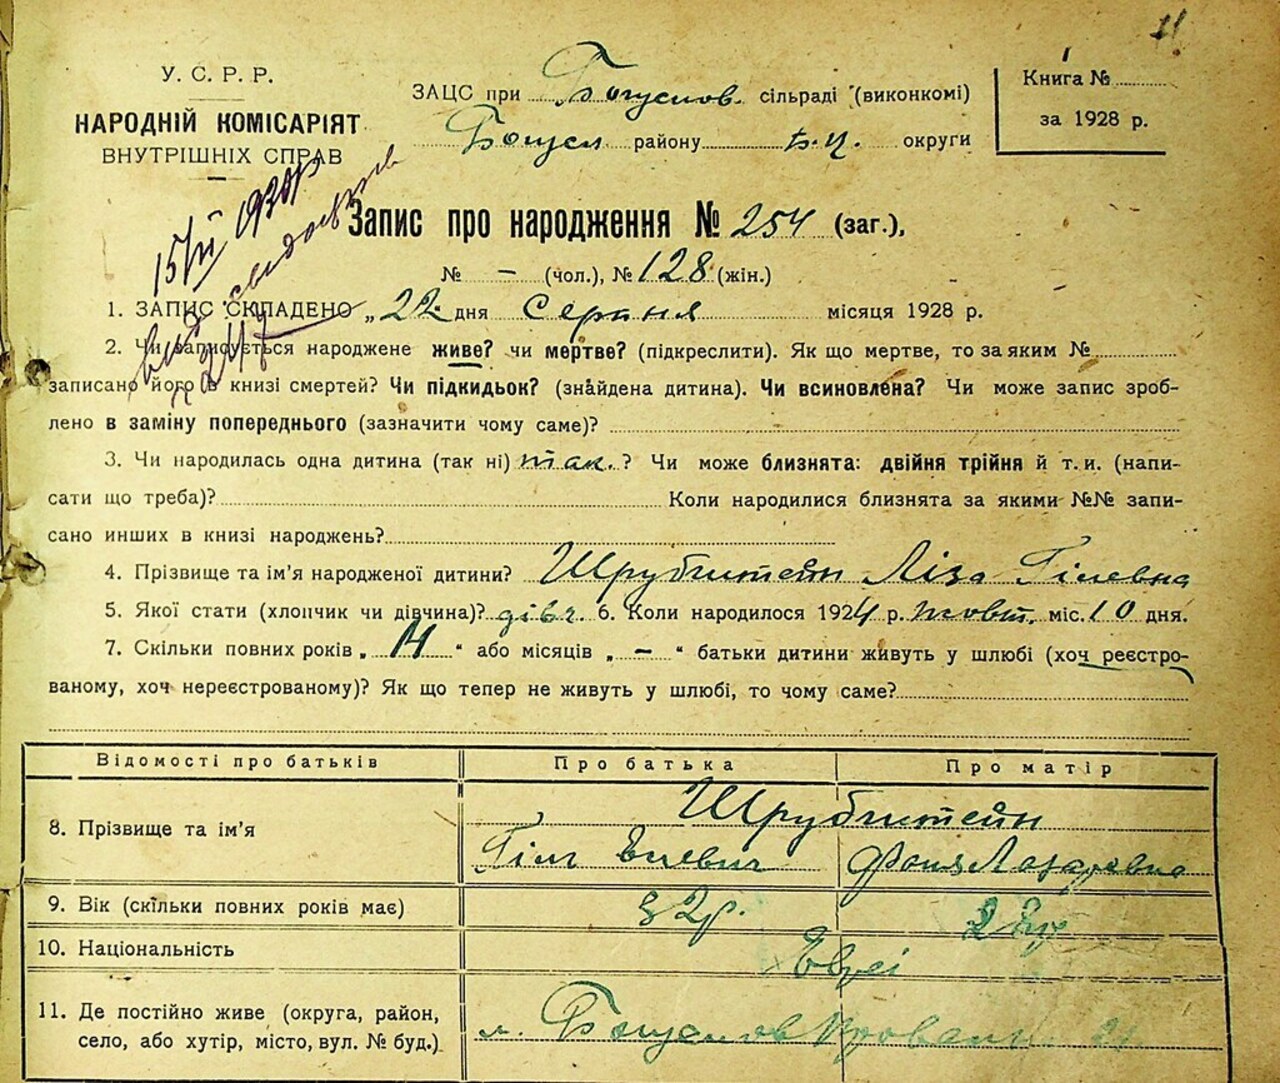 11
У. С. Р. Р.
НАРОДНІЙ КОМІСАРІЯТ
ВНУТРІШНІХ СПРАВ
ЗАЦС при Богуслов. сільраді (виконкомі)
Богусл. району Б.Ц. округи
Книга №
за 1928 р.
15/VII 1930р.
Запис про народження № 254 (заг.),
№ – (чол.), № 128 (жін.)
1. ЗАПИС СКЛАДЕНО „22 дня Серпня місяця 1928 р.
2. Чи записується народжене живе? чи мертве? (підкреслити). Як що мертве, то за яким №
записано його в книзі смертей? Чи підкидьок? (знайдена дитина). Чи всиновлена? Чи може запис зроб-
лено в заміну попереднього (зазначити чому саме)?
3. Чи народилась одна дитина (так ні) так. ? Чи може близнята: двійня трійня й т. и. (напи-
сати що треба)? Коли народилися близнята за якими №№ запи-
сано инших в книзі народжень?
4. Прізвище та ім'я народженої дитини? Шрубштейн Ліза Гілевна
5. Якої стати (хлопчик чи дівчина)? дівч. 6. Коли народилося 1924 р. жовт. міс. 10 дня.
7. Скільки повних років „ “ або місяців „ – “ батьки дитини живуть у шлюбі (хоч реєстро-
ваному, хоч нереєстрованому)? Як що тепер не живуть у шлюбі, то чому саме?
Відомості про батьків Про батька Про матір
8. Прізвище та ім'я Шрубштейн
Гіль Фаня Лазаревна
9. Вік (скільки повних років має) 32р.
10. Національність Євреї
11. Де постійно живе (округа, район,
село, або хутір, місто, вул. № буд.) м. Богуслов